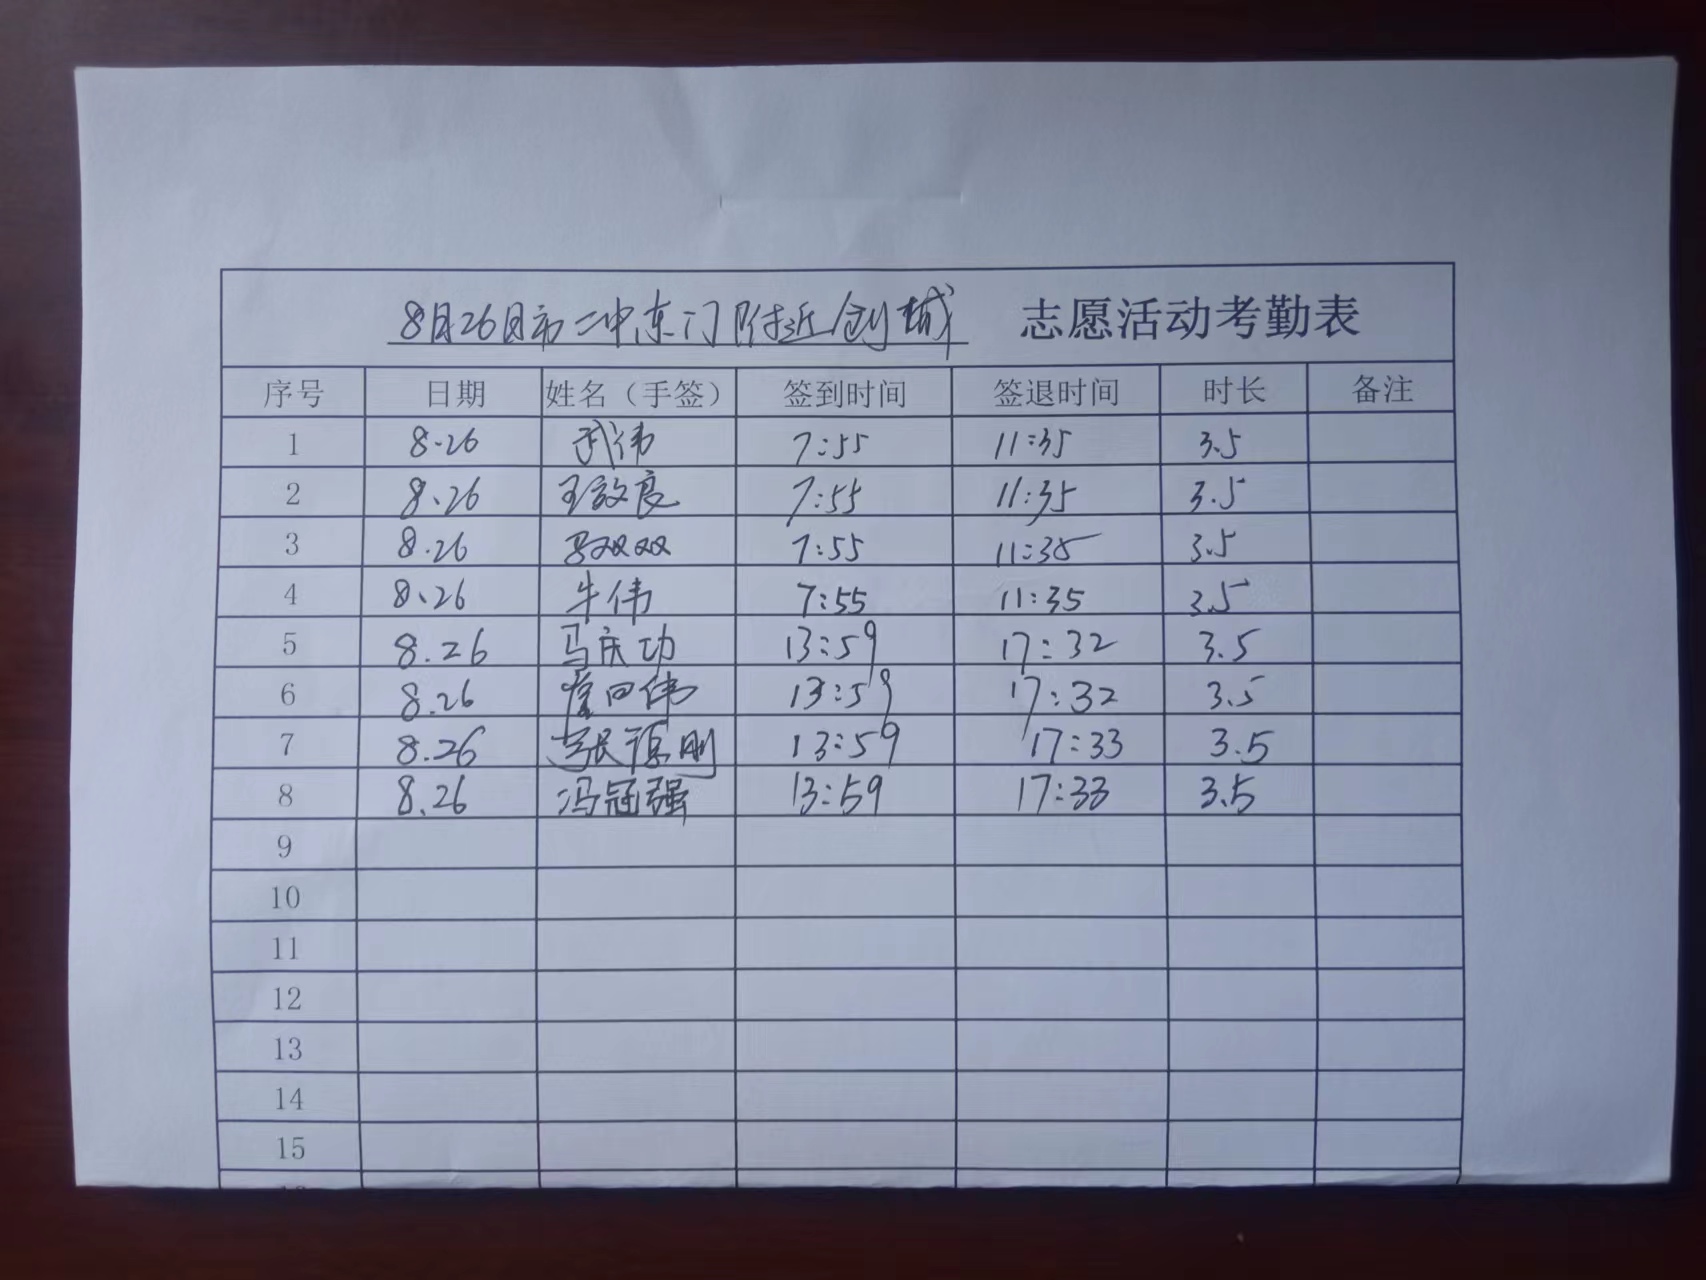 8月26日市二中东门附近创城 志愿活动考勤表
序号 日期 姓名（手签） 签到时间 签退时间 时长 备注
1 8.26 武伟 7:55 11:35 3.5
2 8.26 王 良 7:55 11:35 3.5
3 8.26 马双双 7:55 11:35 3.5
4 8.26 牛伟 7:55 11:35 3.5
5 8.26 马庆功 13:59 17:32 3.5
6 8.26 伟 13:59 17:32 3.5
7 8.26 张 刚 13:59 17:33 3.5
8 8.26 冯冠强 13:59 17:33 3.5
9
10
11
12
13
14
15